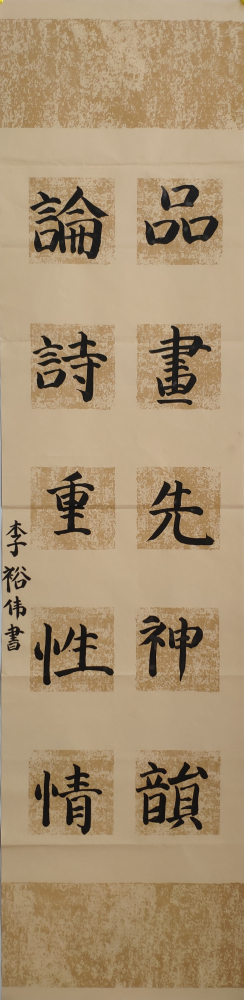 品畫先神韻
論詩重性情
李裕伟書